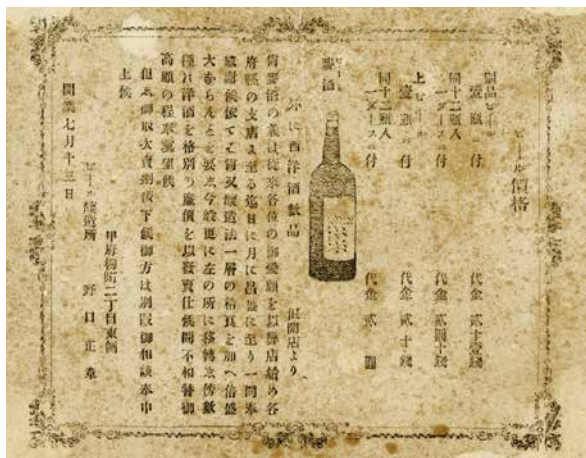 ビール價格
別品ビール
壹瓶ニ付 代金 貳十壹錢
同十二瓶入
一ダースニ付 代金 貳圓十錢
上ビール
壹瓶ニ付 代金 貳十錢
同十二瓶入
一ダースニ付 代金 貳圓
麥酒 并に西洋酒飲品 𛂞開店より
麥酒の義は從來各位の御愛顧を以弊店始め各
府縣の支店に至る迄日に月に昌盛に至り一同奉
感謝候依てこ尚又釀造法一層の精良を加へ倍盛
大からんことを要し今般更に左の所に移轉し傍數
種の洋酒を格別の廉價を以發賣仕候間不相替御
高顧の程奉冀望候
但し御取次賣捌被下候御方は別段御相談奉申
上候
甲府柳町二丁目東側
ビール釀造所 野口正章
開業七月十三日